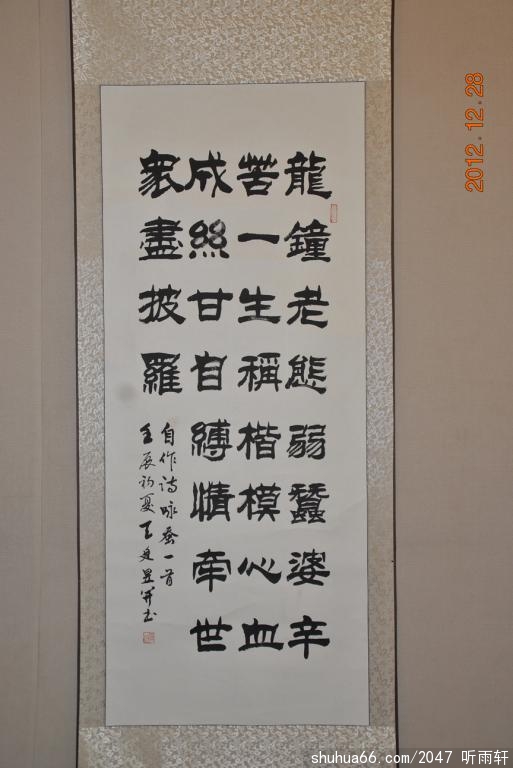 龍鐘老態弱蠶婆辛
苦一生稱楷模心血
成絲甘自縛情牽世
衆盡披羅
自作诗咏蚕一首
壬辰初夏王廷
书
2012.12.28
shuhua66.com/2047 听雨轩